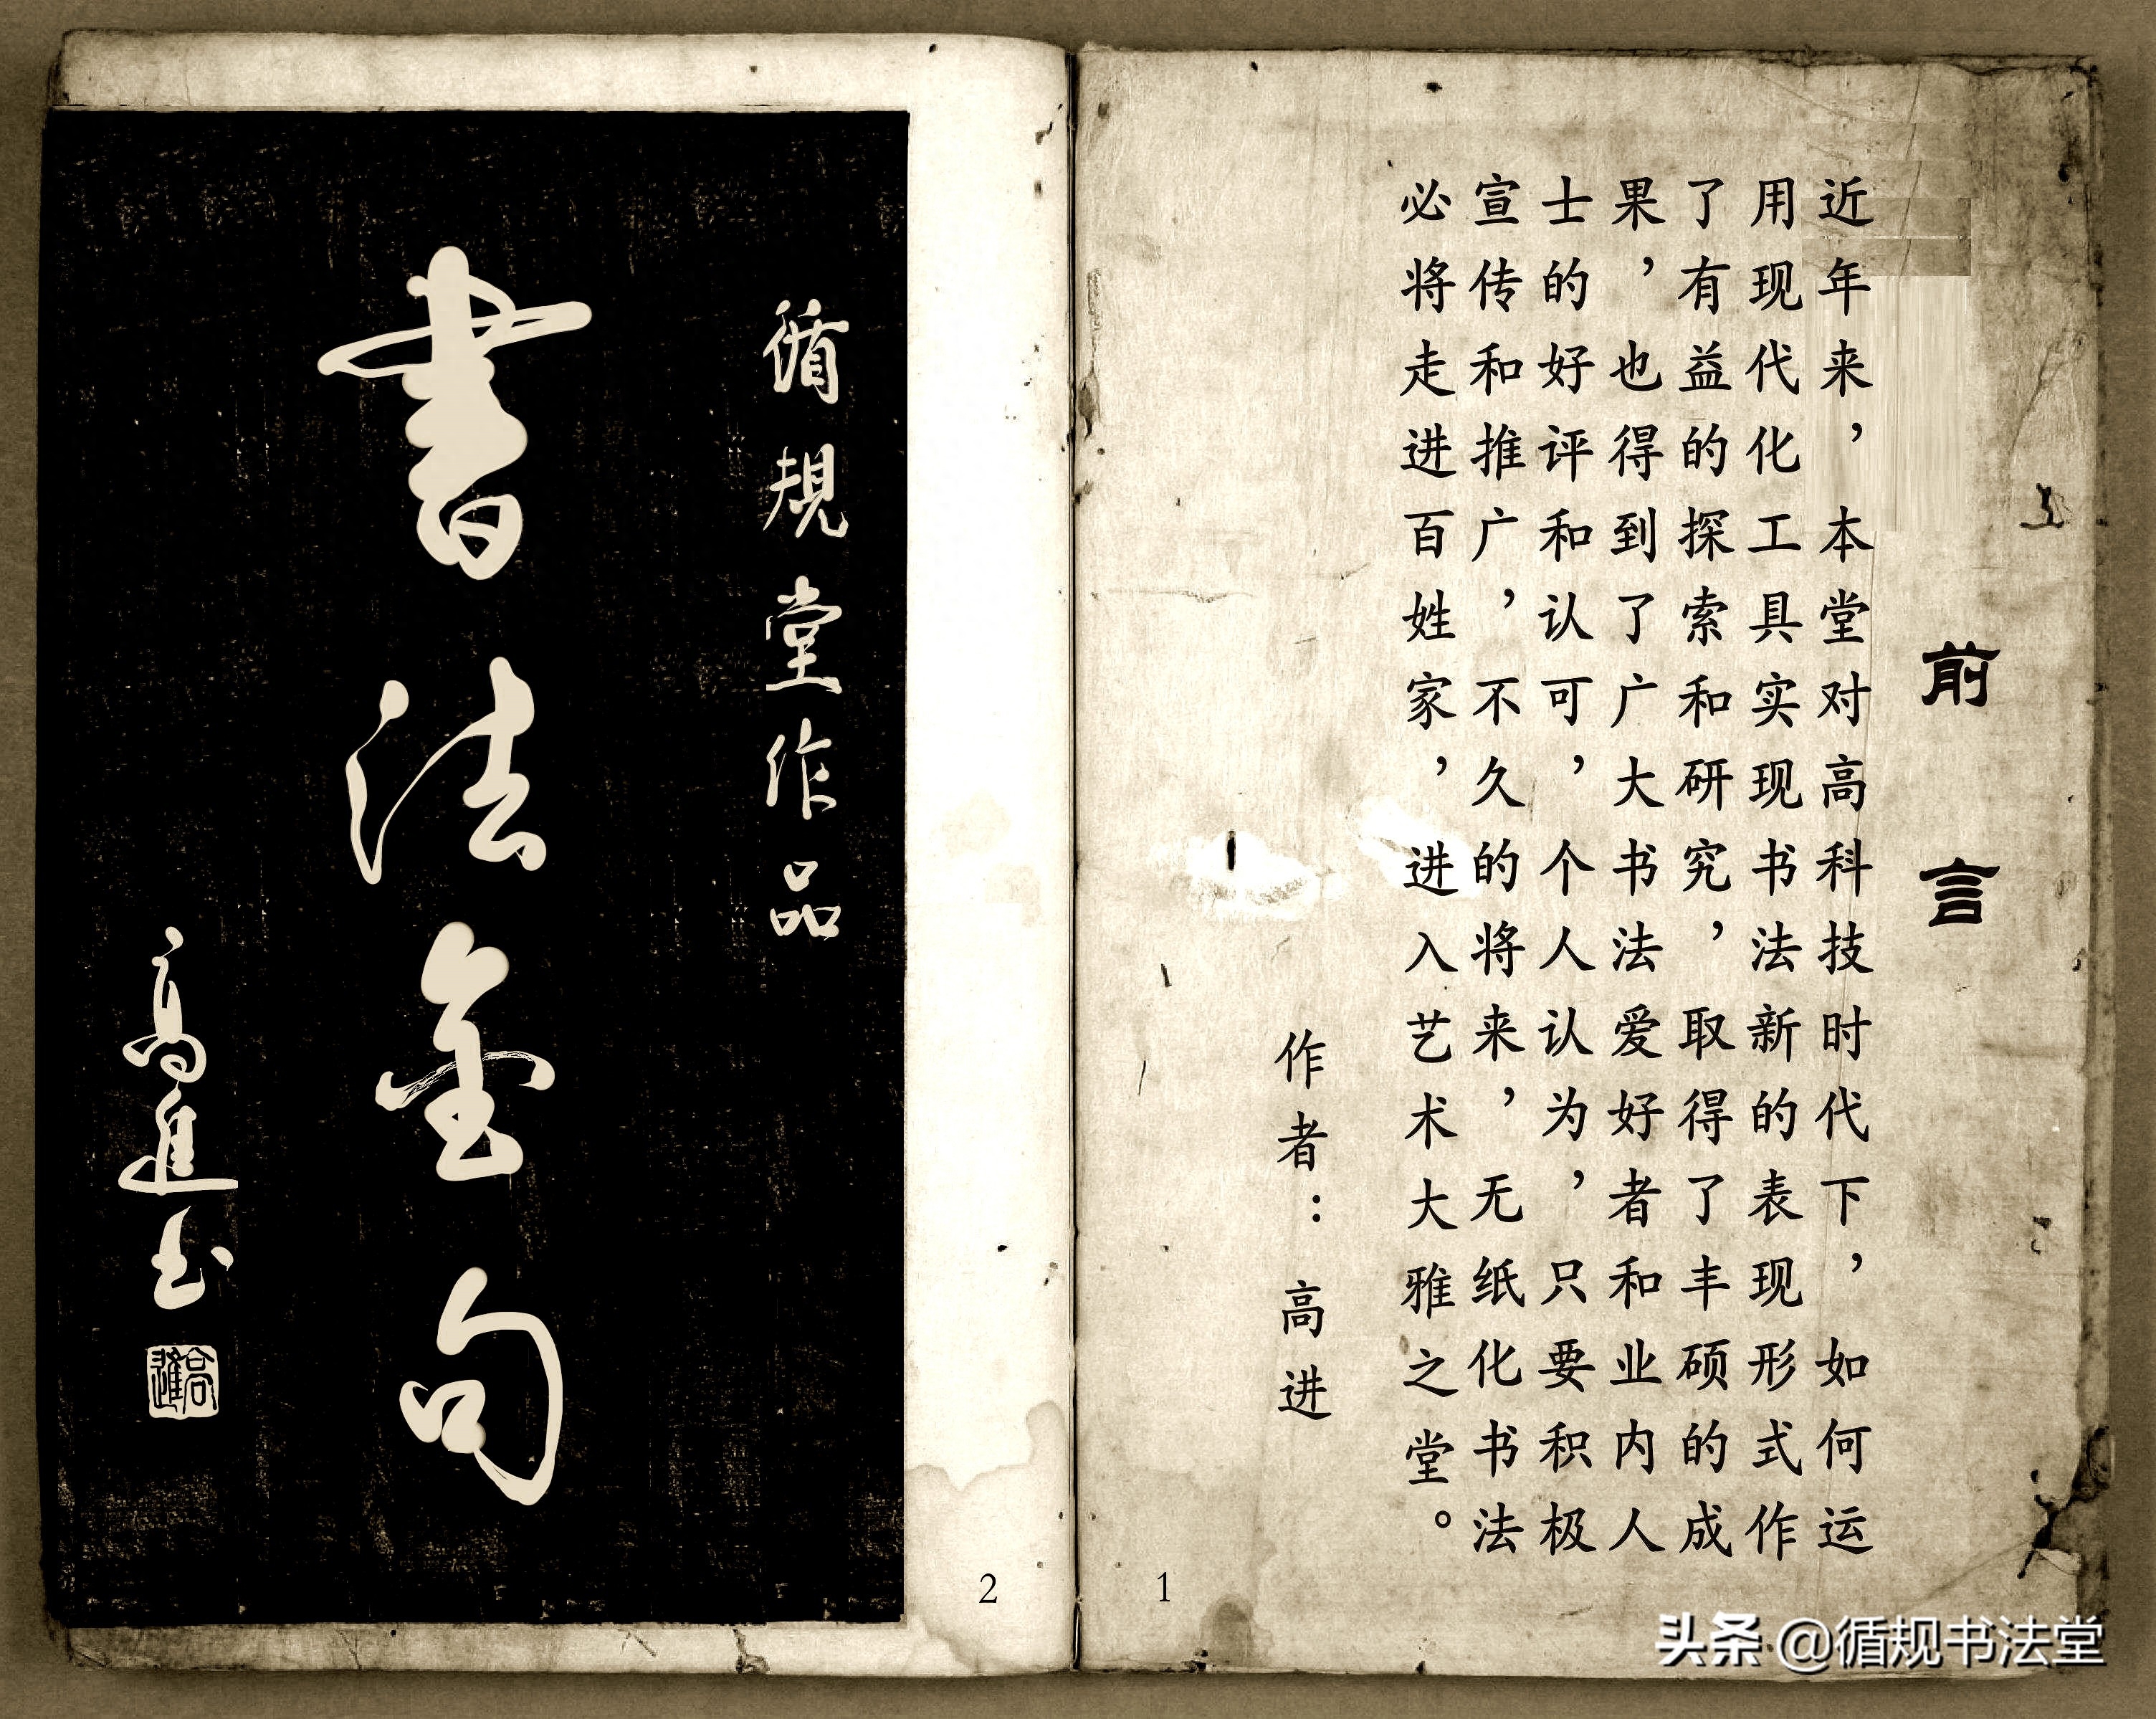 前言
近年来，本堂对高科技时代下，如何运
用现代化工具实现书法新的表现形式作
了有益的探索和研究，取得了丰硕的成
果，也得到了广大书法爱好者和业内人
士的好评和认可，个人认为，只要积极
宣传和推广，不久的将来，无纸化书法
必将走进百姓家，进入艺术大雅之堂。
作者：高进
1
循規堂作品
書法金句
高進书
高進
2
头条 @循规书法堂